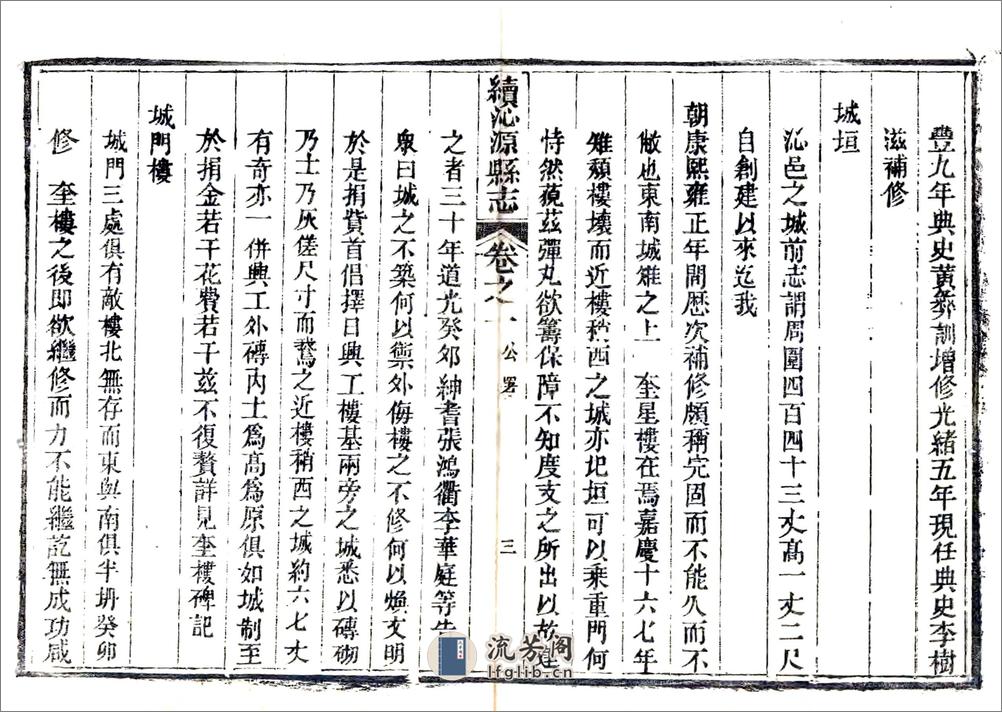 豐九年典史黃彝訓增修光緒五年現任典史李樹
滋補修
城垣
沁邑之城前志謂周圍四百四十三丈高一丈二尺
自創建以來迄我
朝康熙雍正年間歷次補修頗稱完固而不能久而不
敝也東南城雉之上 奎星樓在焉嘉慶十六七年
雉頹樓壞而近樓稍西之城亦圮垣可以乗重門何
恃然藐茲彈丸欲籌保障不知度支之所出以故建
續沁源縣志 卷之一 公署 三
之者三十年道光癸夘紳耆張鴻衢李華庭等告
衆曰城之不築何以禦外侮樓之不修何以煥文明
於是捐貲首倡擇日興工樓基兩旁之城悉以磚砌
乃士乃灰僅尺寸而鶩之近樓稍西之城約六七丈
有奇亦一併興工外磚內土爲高爲原俱如城制至
於捐金若干花費若干茲不復贅詳見奎樓碑記
城門樓
城門三處俱有敵樓北無存而東與南俱半坍癸卯
修 奎樓之後即欲繼修而力不能繼訖無成功咸
流芳閣
lfglib.cn